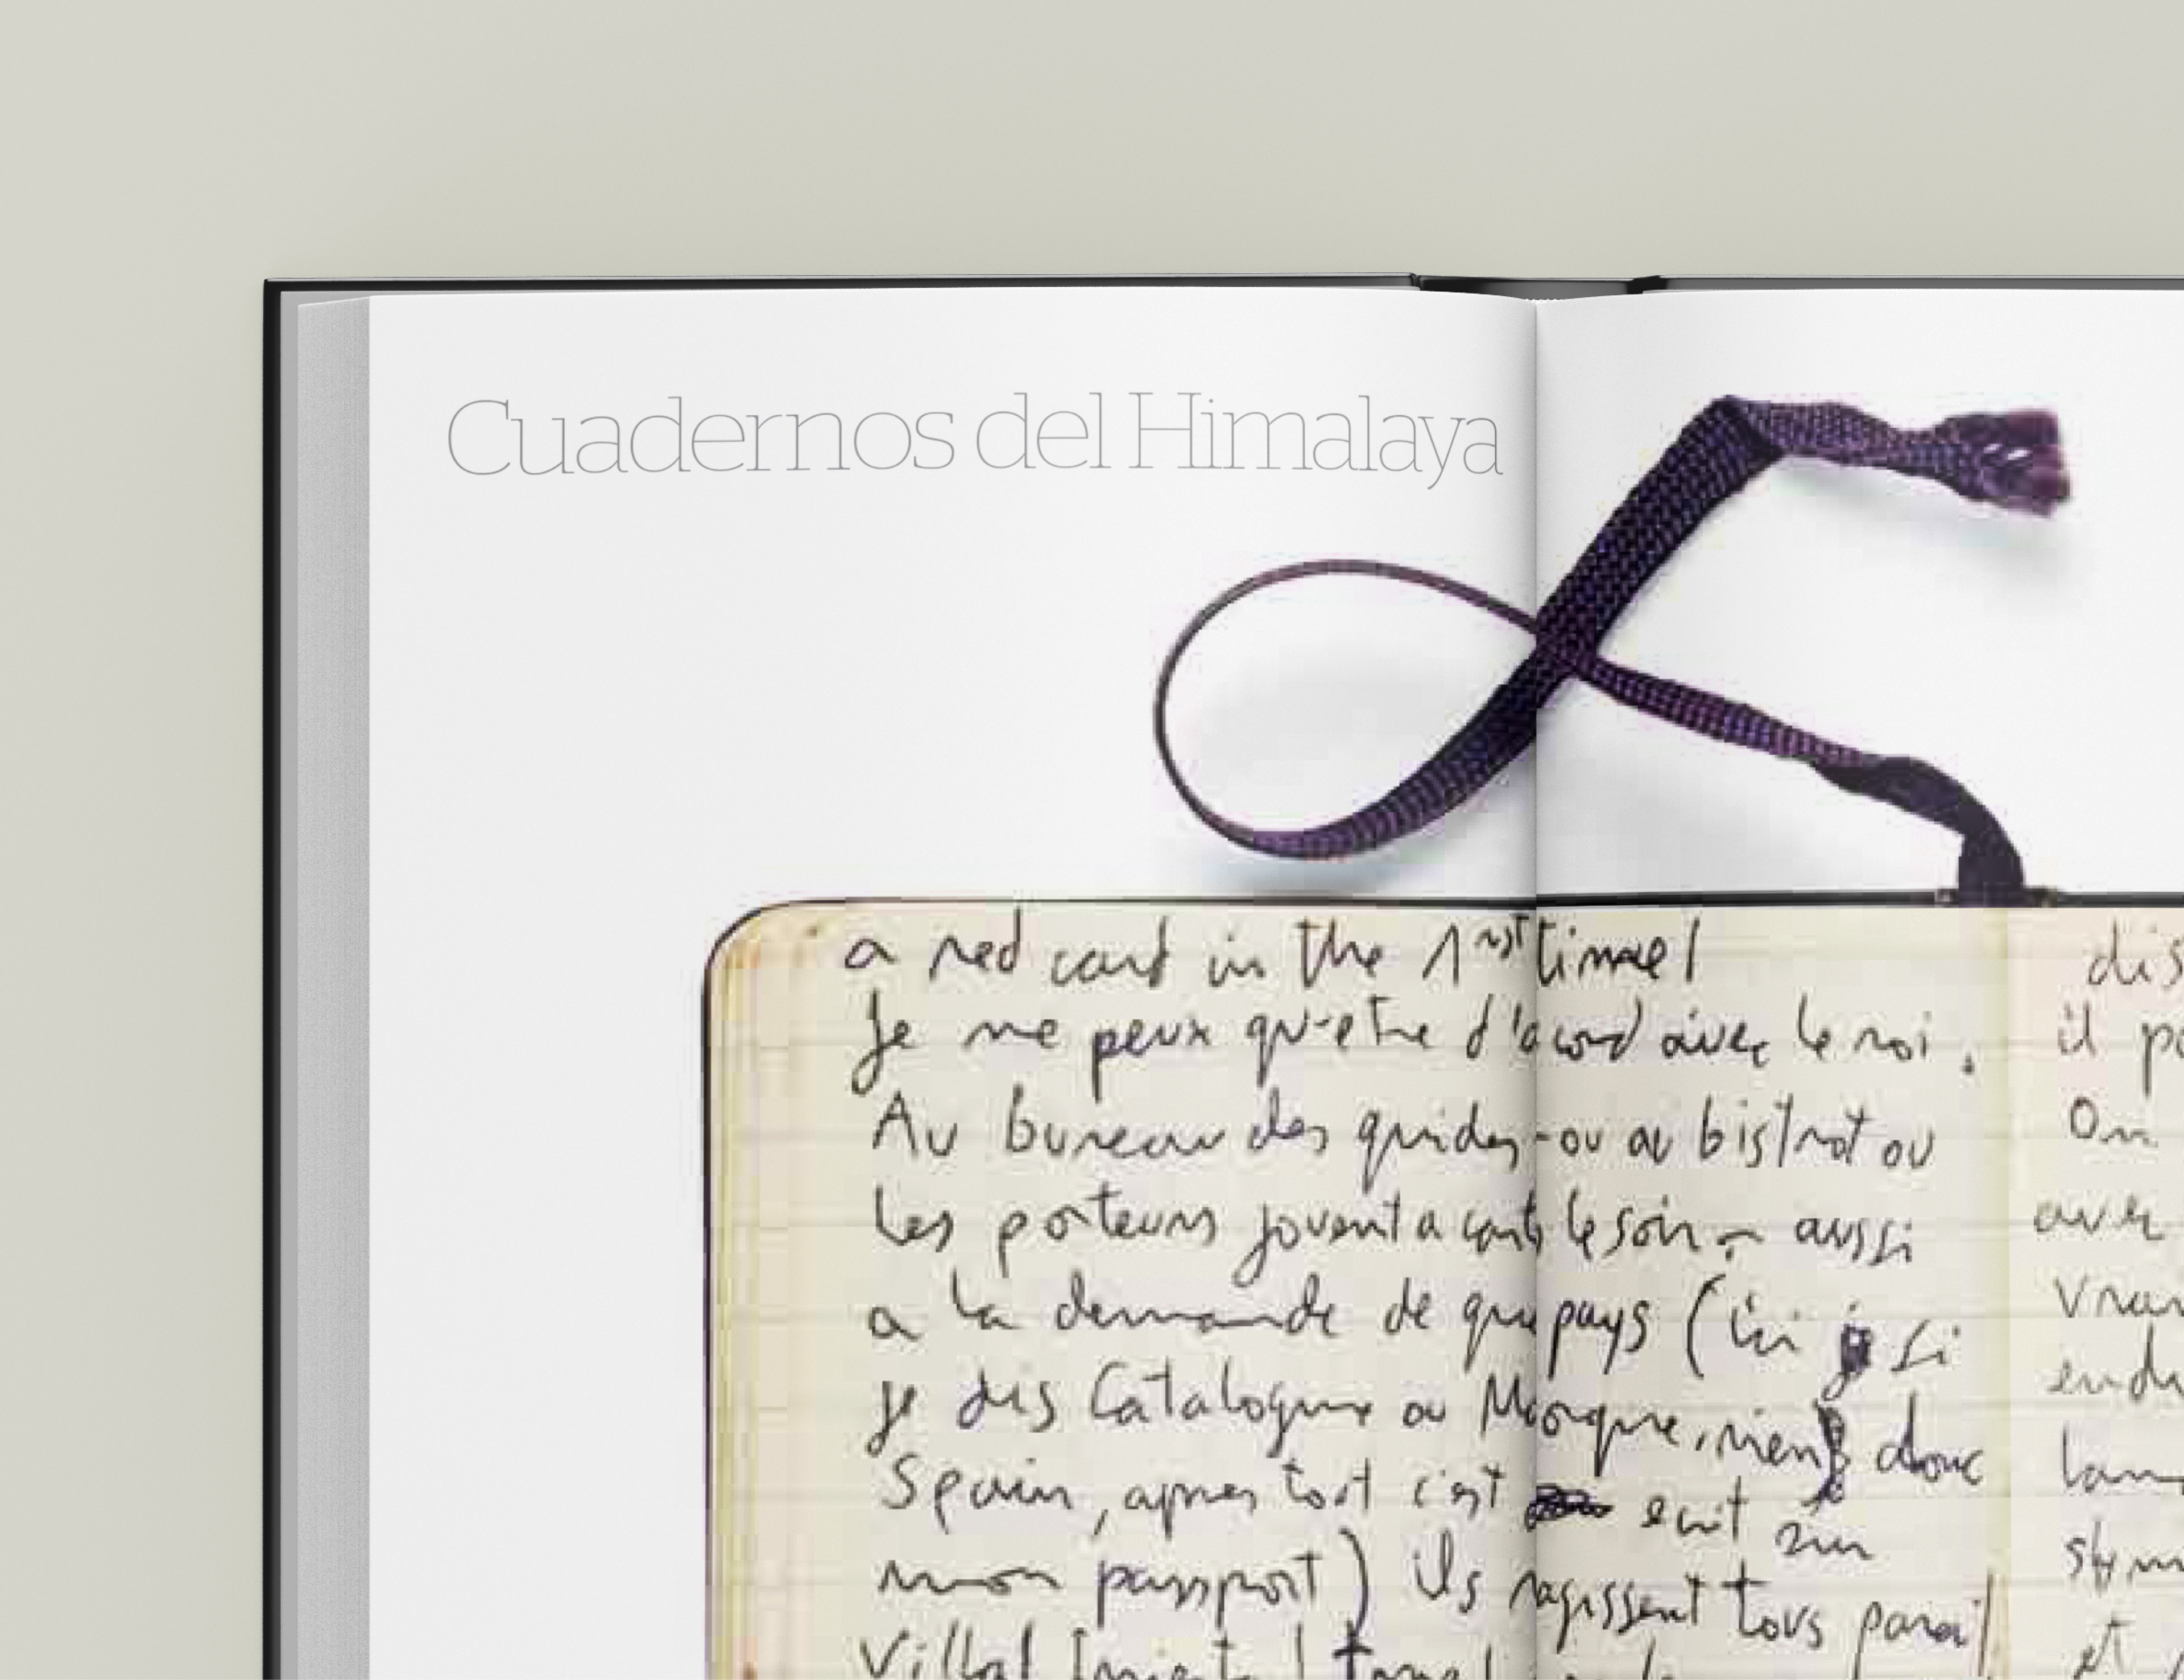 Cuadernos del Himalaya
a red card in the 1rst time!
Je ne peux qu-etre d'acord avec le roi.
Au bureau des guides - ou au bistrot ou
les porteurs jouent a carts le soir - aussi
a la demande de que pays (ici si
je dis Catalogne ou Maroque, rien) donc
Spain, apres tout c'est ecrit sur
mon passport) ils ragissent tous pareil
Villa! Iniesta!
dis
il
On
avec
et